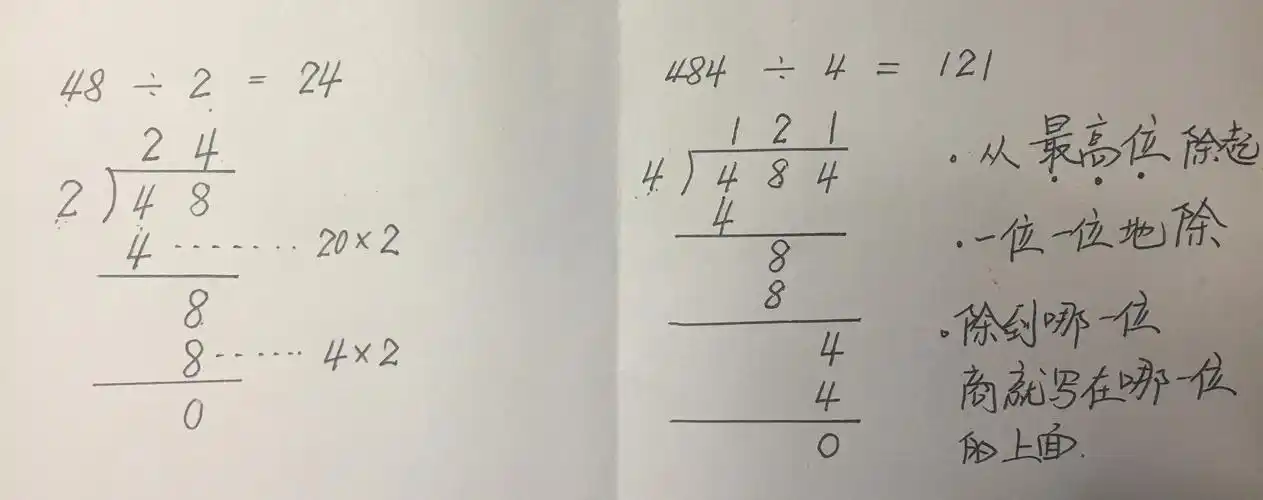 48 ÷ 2 = 24
2 4
2 ) 4 8
4 ······· 20×2
8
8 ······ 4×2
0
484 ÷ 4 = 121
1 2 1
4 ) 4 8 4
4
8
8
4
4
0
·从最高位除起
·一位一位地除
·除到哪一位
商就写在哪一位
的上面.